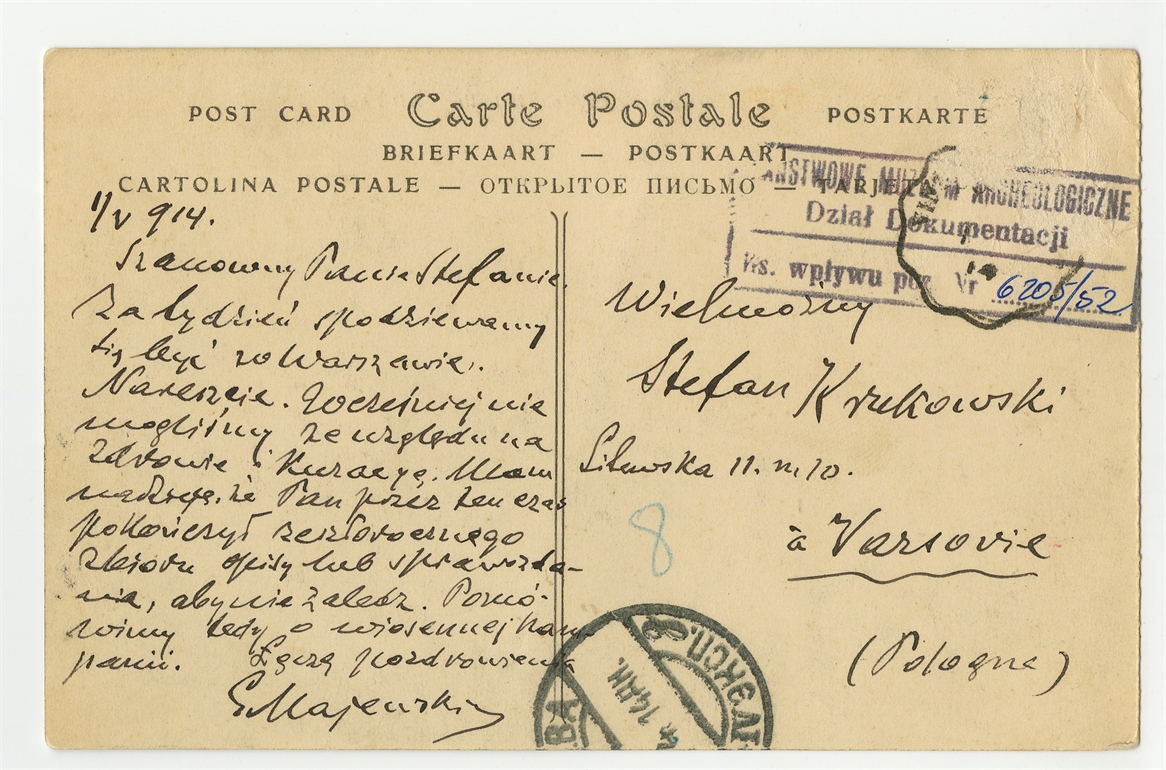 POST CARD Carte Postale POSTKARTE
BRIEFKAART — POSTKAART
CARTOLINA POSTALE — ОТКРЫТОЕ ПИСЬМО — TARJETA
PAŃSTWOWE MUZEUM ARCHEOLOGICZNE
Dział Dokumentacji
Ks. wpływu poz. Nr 6205/52
1/V 914.
Szanowny Panie Stefanie.
Za tydzień spodziewamy
się być w Warszawie.
Nareszcie. Wcześniej nie
mogliśmy ze względu na
zdrowie i Kuracyę. Mam
nadzieję, że Pan przez ten czas
pokończył zeszłorocznego
zbioru opisy lub sprawozda-
nia, aby nie zaledz. Pomó-
wimy tedy o wiosennej kam-
panii. Łączę pozdrowienia
E Majewski
Wielmożny
Stefan Krukowski
Litewska 11. m 10.
à Varsovie
(Pologne)
8
ВА
14 АПР.
ЭКСП. 8